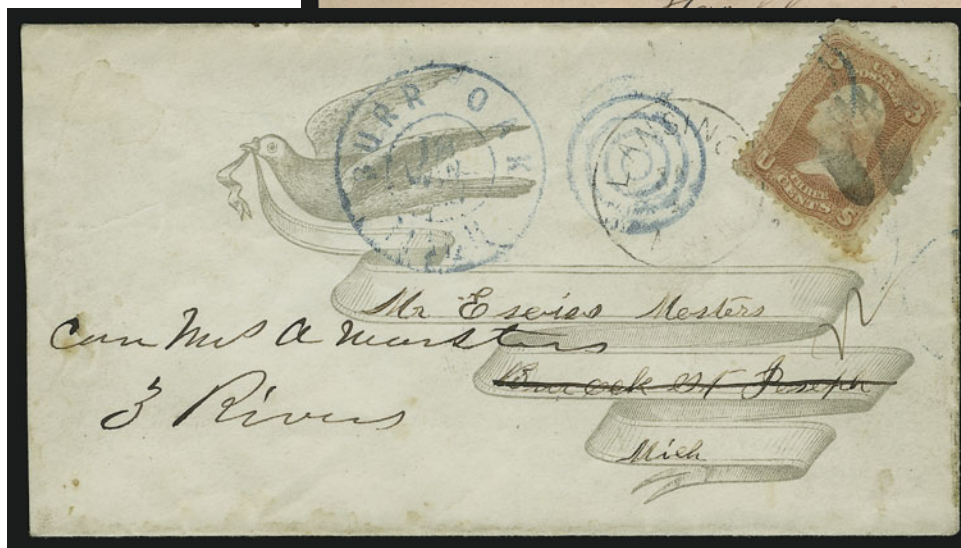 BURR OAK
LANSING
U.S. POSTAGE
3 3
THREE
CENTS
U S
Mr Mesters
Care Mrs A Marsters
Burr oak St Joseph
3 Rivers
Mich